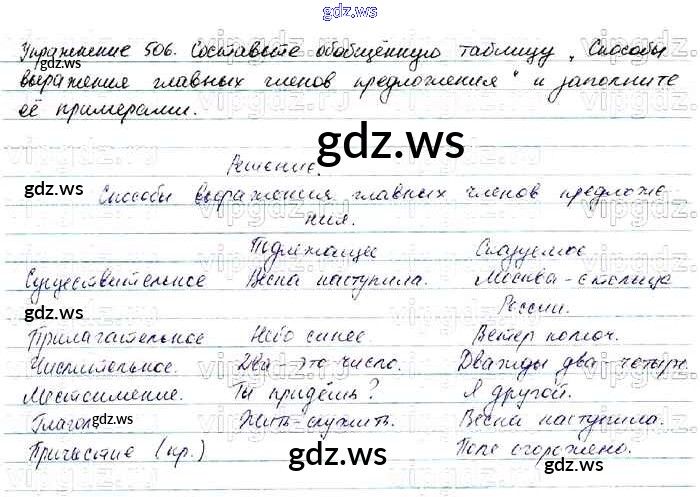 gdz.ws
Упражнение 506. Составьте обобщённую таблицу „Способы
выражения главных членов предложения" и заполните
её примерами.
gdz.ws
Решение.
gdz.ws
Способы выражения главных членов предложе
ния.
Подлежащее Сказуемое
Существительное Весна наступила. Москва-столица
России.
Прилагательное Небо синее. Ветер колюч.
Числительное. Два это число. Дважды два четыре
Местоимение. Ты придёшь? Я другой.
Глагол Жить-служить. Весна наступила.
gdz.ws
Причастие (кр.) Поле огорожено.
gdz.ws
gdz.ws